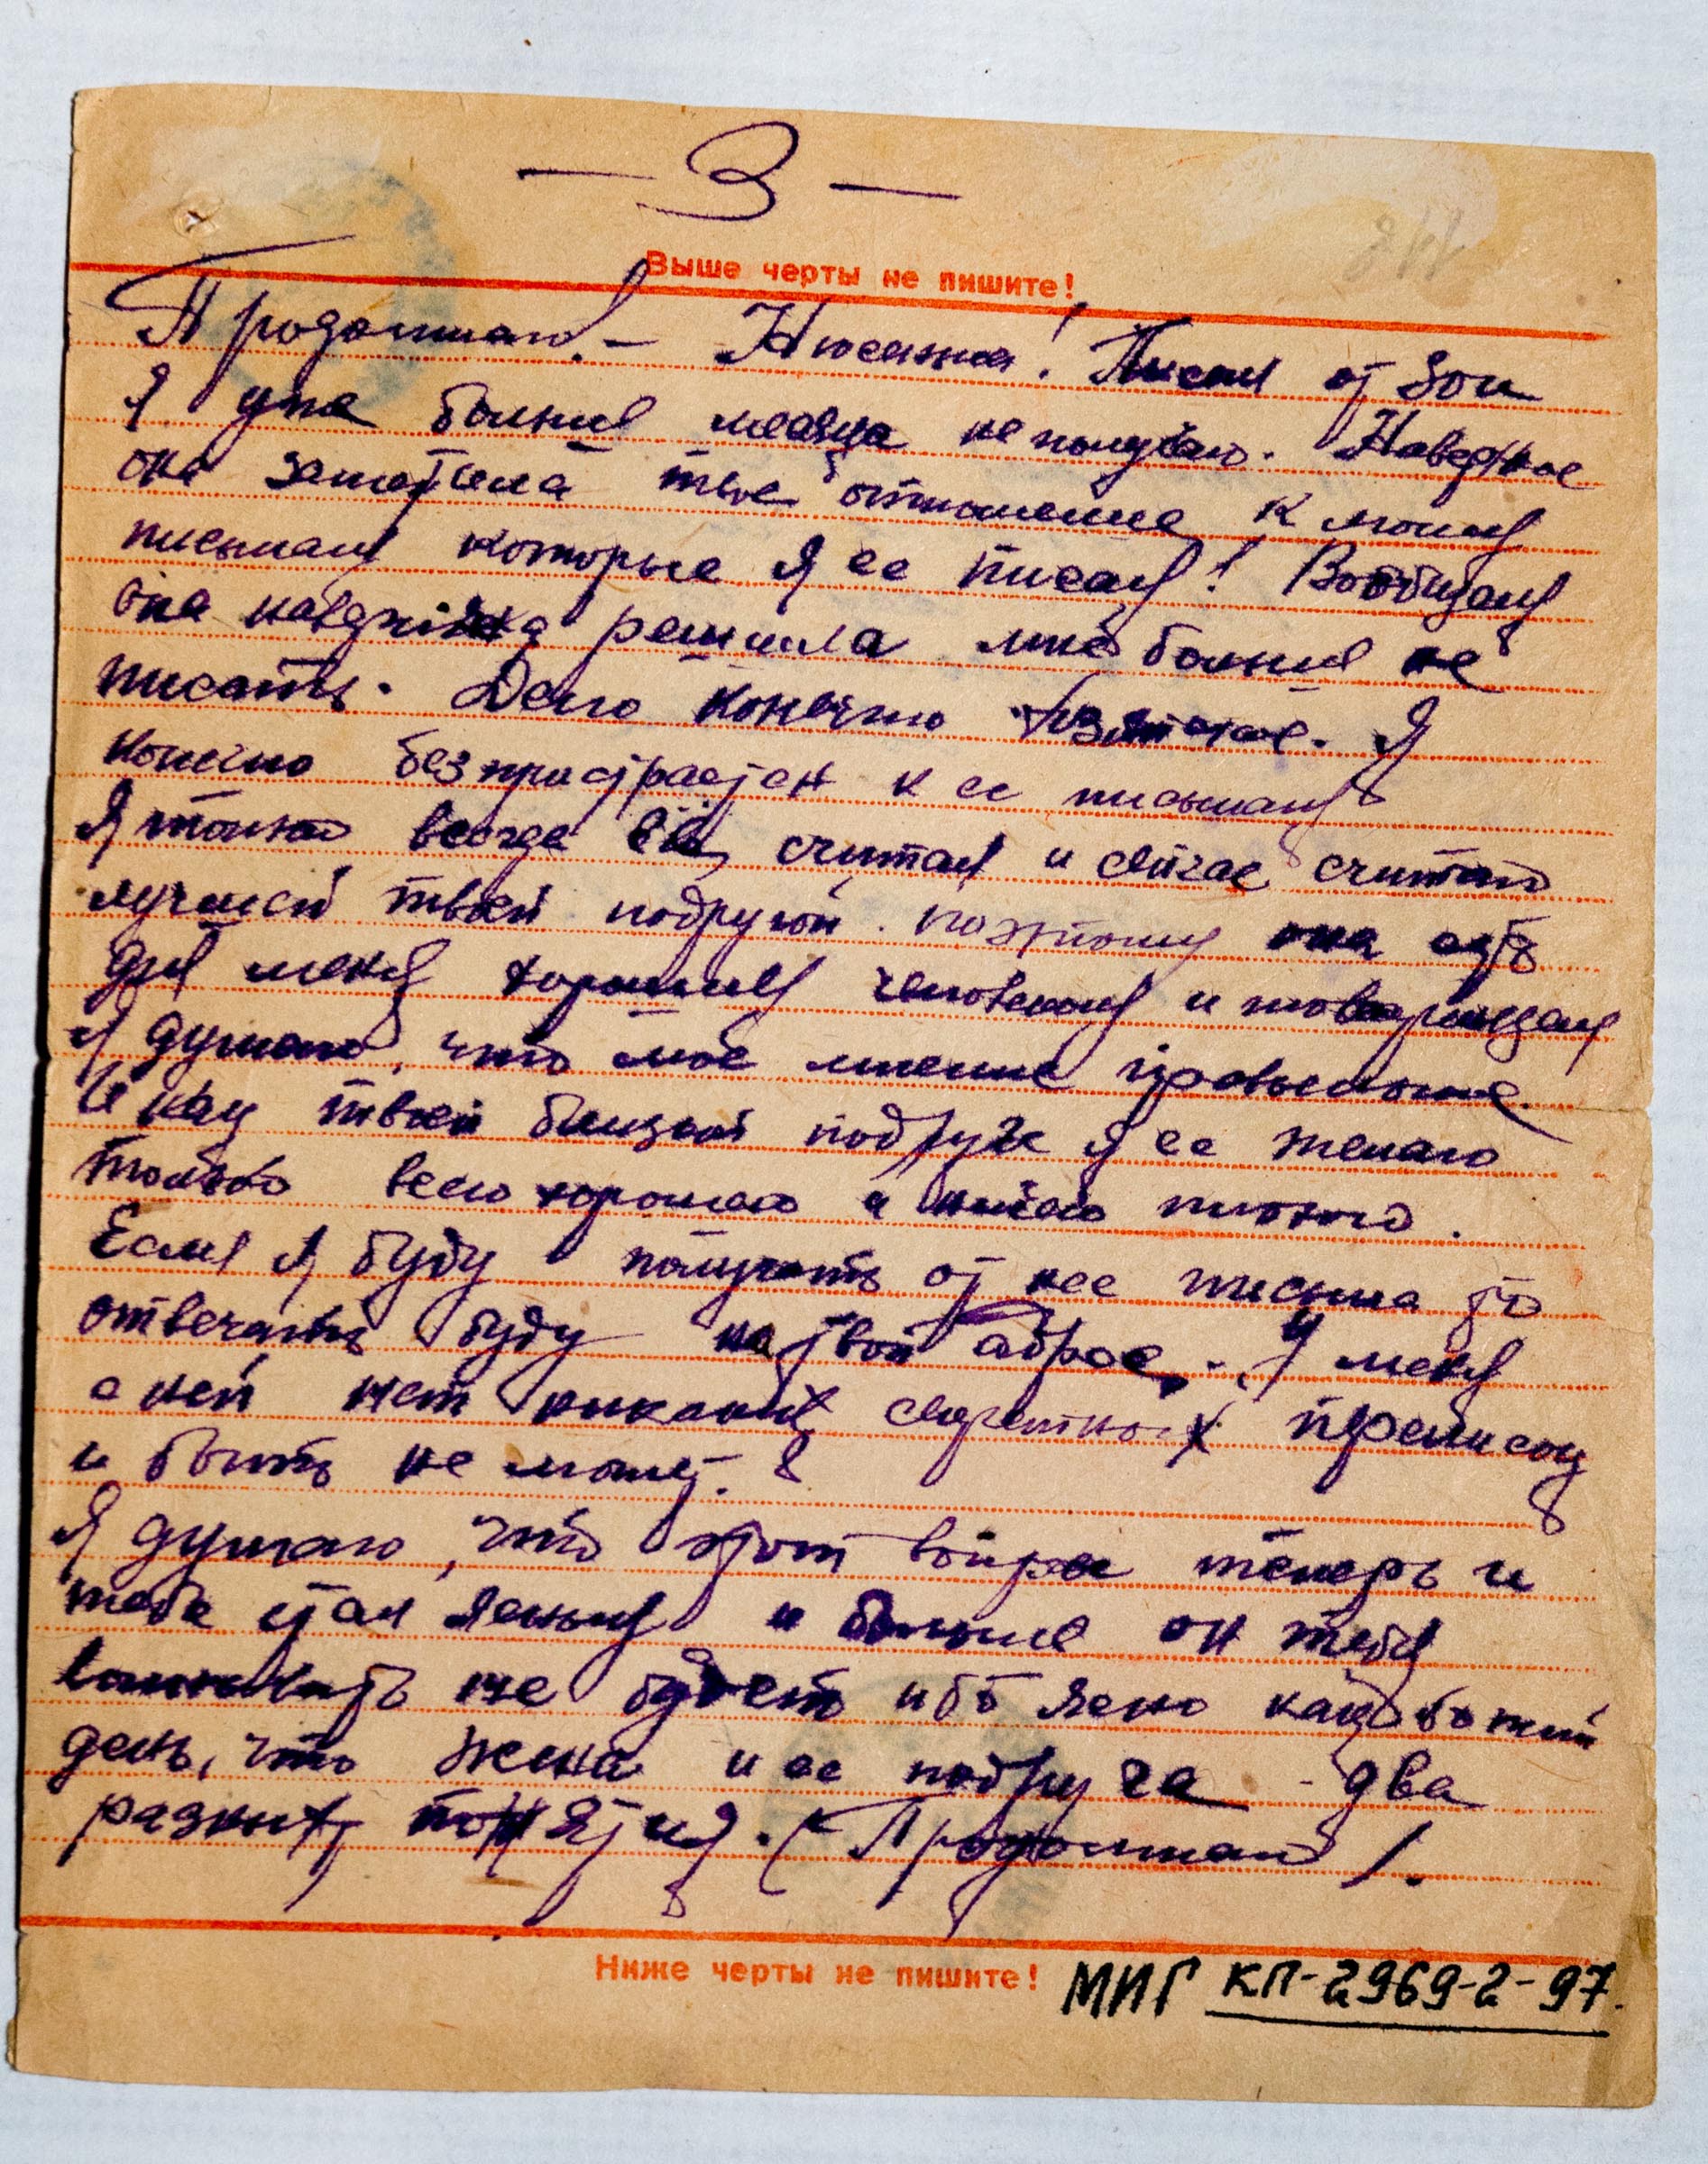 — 3 —
Выше черты не пишите!
Продолжаю! — Нюсенька! Писем от Зои
я уже больше месяца не получаю. Наверное
она заметила твое отношение к моим
письмам которые я ее писал! Вообщем
она наверняка решила мне больше не
писать. Дело конечно понятное. Я
конечно безпристрастен к ее письмам
Я только всегда её считал и сейчас считаю
лучшей твоей подругой. поэтому она есть
для меня хорошим человеком и товарищем
Я думаю, что мое мнение правильное.
И как твоей близкой подруге я ее желаю
только всего хорошего и ничего плохого.
Если я буду получать от нее письма то
отвечать буду на твой адрес. У меня
с ней нет никаких секретных переписок
и быть не может.
Я думаю, что этот вопрос теперь и
тебе стал ясным и больше он тебя
волновать не будет ибо ясно как божий
день, что жена и ее подруга - два
разных понятия. (Продолжаю).
Ниже черты не пишите!
МИГ КП-2969-2-97.